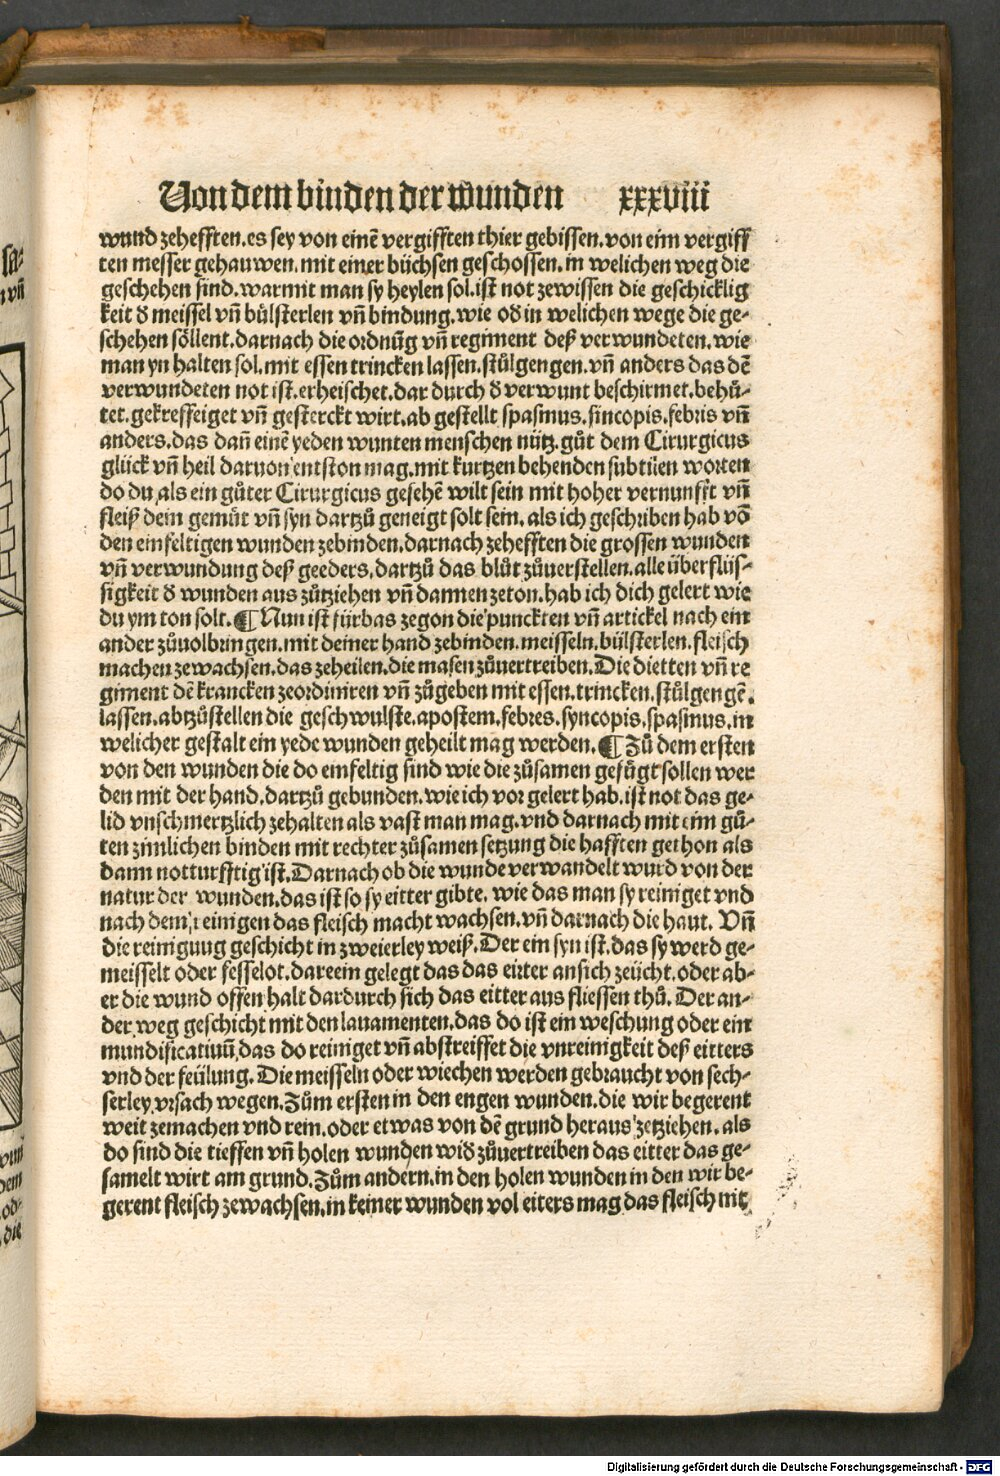 Von dem binden der wunden xxxviii
wund zehefften. es sey von einē vergifften thier gebissen. von eim vergiff
ten messer gehauwen. mit einer büchsen geschossen. in welichen weg die
geschehen sind. warmit man sy heylen sol. ist not zewissen die geschicklig
keit d̕ meissel vn̄ bülsterlen vn̄ bindung. wie od̕ in welichen wege die ge⸗
schehen söllent. darnach die ordnūg vn̄ regiment deß verwundeten. wie
man yn halten sol. mit essen trincken lassen. stůlgengen. vn̄ anders das dē
verwundeten not ist. erheischet. dar durch d̕ verwunt beschirmet. behů⸗
tet. gekreffeiget vn̄ gesterckt wirt. ab gestellt spasmus. sincopis. febris vn̄
anders. das dan̄ einē yeden wunten menschen nütz. gůt dem Cirurgicus
glück vn̄ heil daruon entston mag. mit kurtzen behenden subtilen worten
do du als ein gůter Cirurgicus gesehē wilt sein mit hoher vernunfft vn̄
fleiß dein gemüt vn̄ syn dartzů geneigt solt sein. als ich geschriben hab vō
den einfeltigen wunden zebinden. darnach zehefften die grossen wunden
vn̄ verwundung deß geeders. dartzů das blůt zůuerstellen. alle überflüs⸗
sigkeit d̕ wunden aus zůtziehen vn̄ dannen zeton. hab ich dich gelert wie
du ym ton solt. ¶ Nun ist fürbas zegon die punckten vn̄ artickel nach ein
ander zůuolbringen. mit deiner hand zebinden. meisseln. bülsterlen. fleisch
machen zewachsen. das zeheilen. die masen zůuertreiben. Die dietten vn̄ re
giment dē krancken zeordiniren vn̄ zůgeben mit essen. trincken. stůlgengē.
lassen. abtzůstellen die geschwulste. apostem. febres. syncopis. spasmus. in
welicher gestalt ein yede wunden geheilt mag werden. ¶ Zů dem ersten
von den wunden die do einfeltig sind wie die zůsamen gefůgt sollen wer
den mit der hand. dartzů gebunden. wie ich vor gelert hab. ist not das ge⸗
lid vnschmertzlich zehalten als vast man mag. vnd darnach mit eim gů⸗
ten zimlichen binden mit rechter zůsamen setzung die hafften gethon als
dann notturfftig ist. Darnach ob die wunde verwandelt wurd von der
natur der wunden. das ist so sy eitter gibte. wie das man sy reiniget vnd
nach dem reinigen das fleisch macht wachsen. vn̄ darnach die haut. Vn̄
die reinigung geschicht in zweierley weiß. Der ein syn ist. das sy werd ge⸗
meisselt oder fesselot. darein gelegt das das eitter an sich zeücht. oder ab⸗
er die wund offen halt dardurch sich das eitter aus fliessen thů. Der an⸗
der weg geschicht mit den lauamenten. das do ist ein weschung oder ein
mundificatiuū. das do reiniget vn̄ abstreiffet die vnreinigkeit deß eitters
vnd der feülung. Die meisseln oder wiechen werden gebraucht von sech⸗
serley vrsach wegen. Zům ersten in den engen wunden. die wir begerent
weit zemachen vnd rein. oder etwas von dē grund heraus zetziehen. als
do sind die tieffen vn̄ holen wunden wid̕ zůuertreiben das eitter das ge⸗
samelt wirt am grund. Zům andern. in den holen wunden in den wir be⸗
gerent fleisch zewachsen. in keiner wunden vol eiters mag das fleisch nit
Digitalisierung gefördert durch die Deutsche Forschungsgemeinschaft - DFG